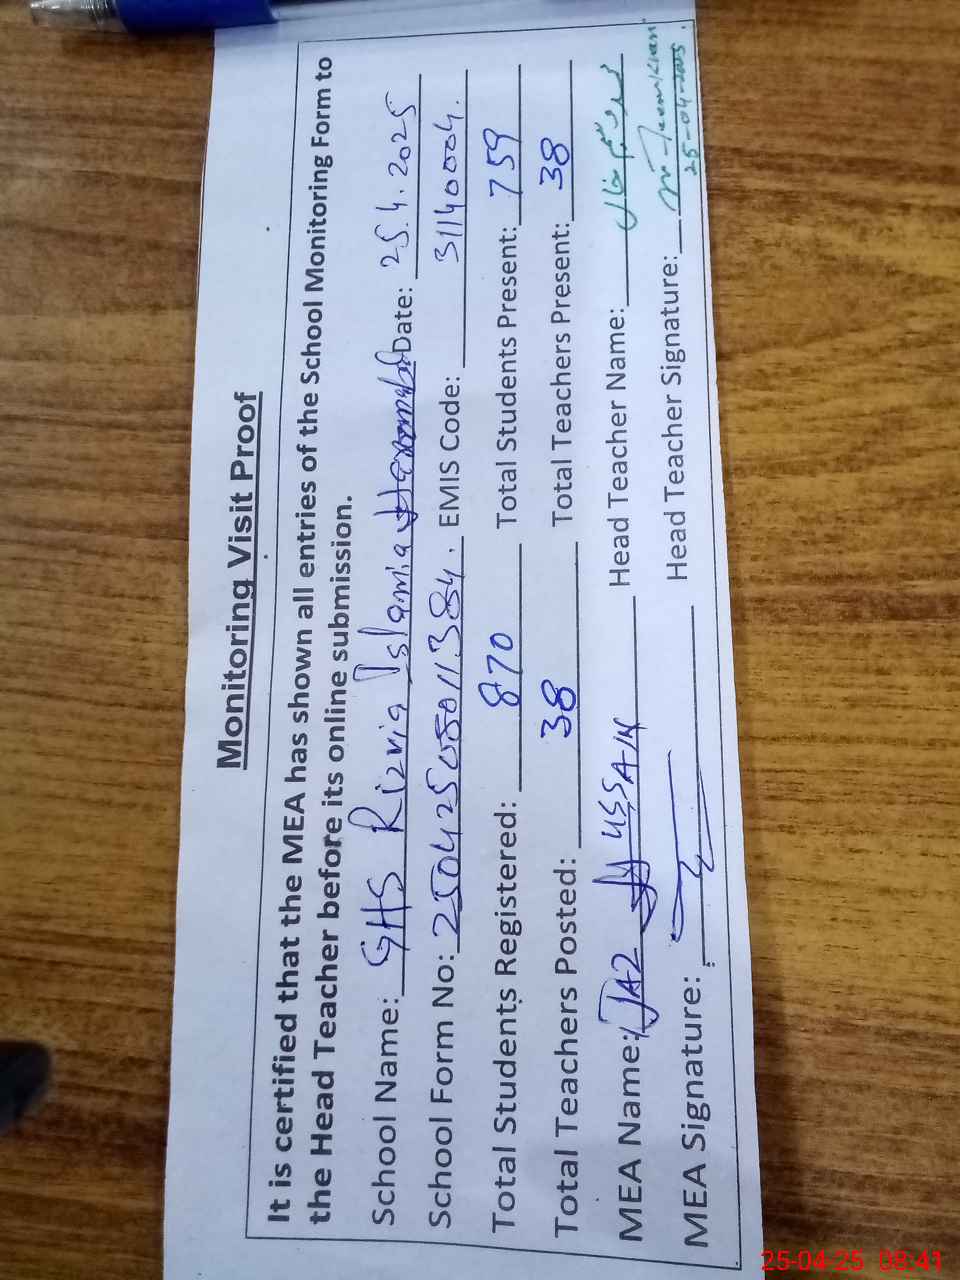 Monitoring Visit Proof
It is certified that the MEA has shown all entries of the School Monitoring Form to
the Head Teacher before its online submission.
School Name: GHS Rizvia Islamia Date: 25.4.2025
School Form No: 25042508011384. EMIS Code: 31140004.
Total Students Registered: 870 Total Students Present: 759
Total Teachers Posted: 38 Total Teachers Present: 38
MEA Name: IJAZ HUSSAIN Head Teacher Name:
MEA Signature: Head Teacher Signature:
25-04-2025.
25-04-25 08:41